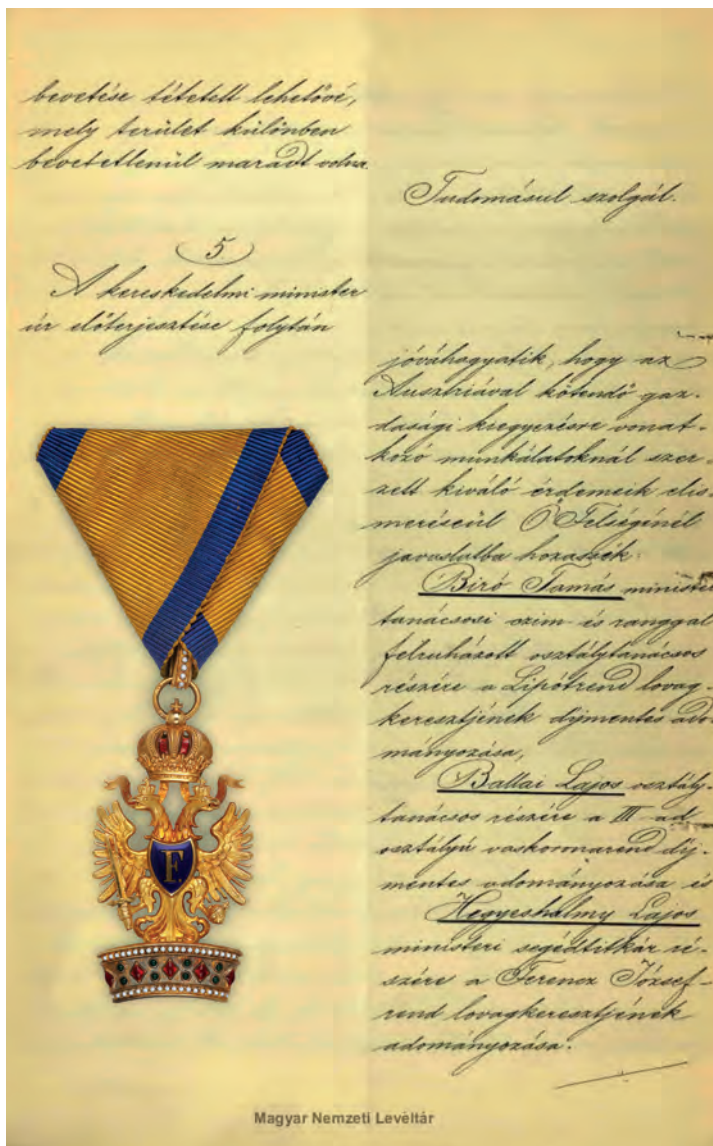 bevetése tétetett lehetővé,
mely terület különben
bevetetlenül maradt volna.
5
A kereskedelmi minister
úr előterjesztése folytán
Tudomásul szolgál.
jóváhagyatik, hogy az
Ausztriával kötendő gaz-
dasági kiegyezésre vonat-
kozó munkálatoknál szer-
zett kiváló érdemeik elis-
meréseül Ő Felségénél
javaslatba hozassék:
Biró Tamás ministeri
tanácsosi czim és ranggal
felruházott osztálytanácsos
részére a Lipótrend lovag-
keresztjének díjmentes ado-
mányozása,
Ballai Lajos osztály-
tanácsos részére a III-ad
osztályú vaskoronarend díj-
mentes adományozása és
Hegyeshalmy Lajos
ministeri segédtitkár ré-
szére a Ferencz József-
rend lovagkeresztjének
adományozása.
F.
Magyar Nemzeti Levéltár